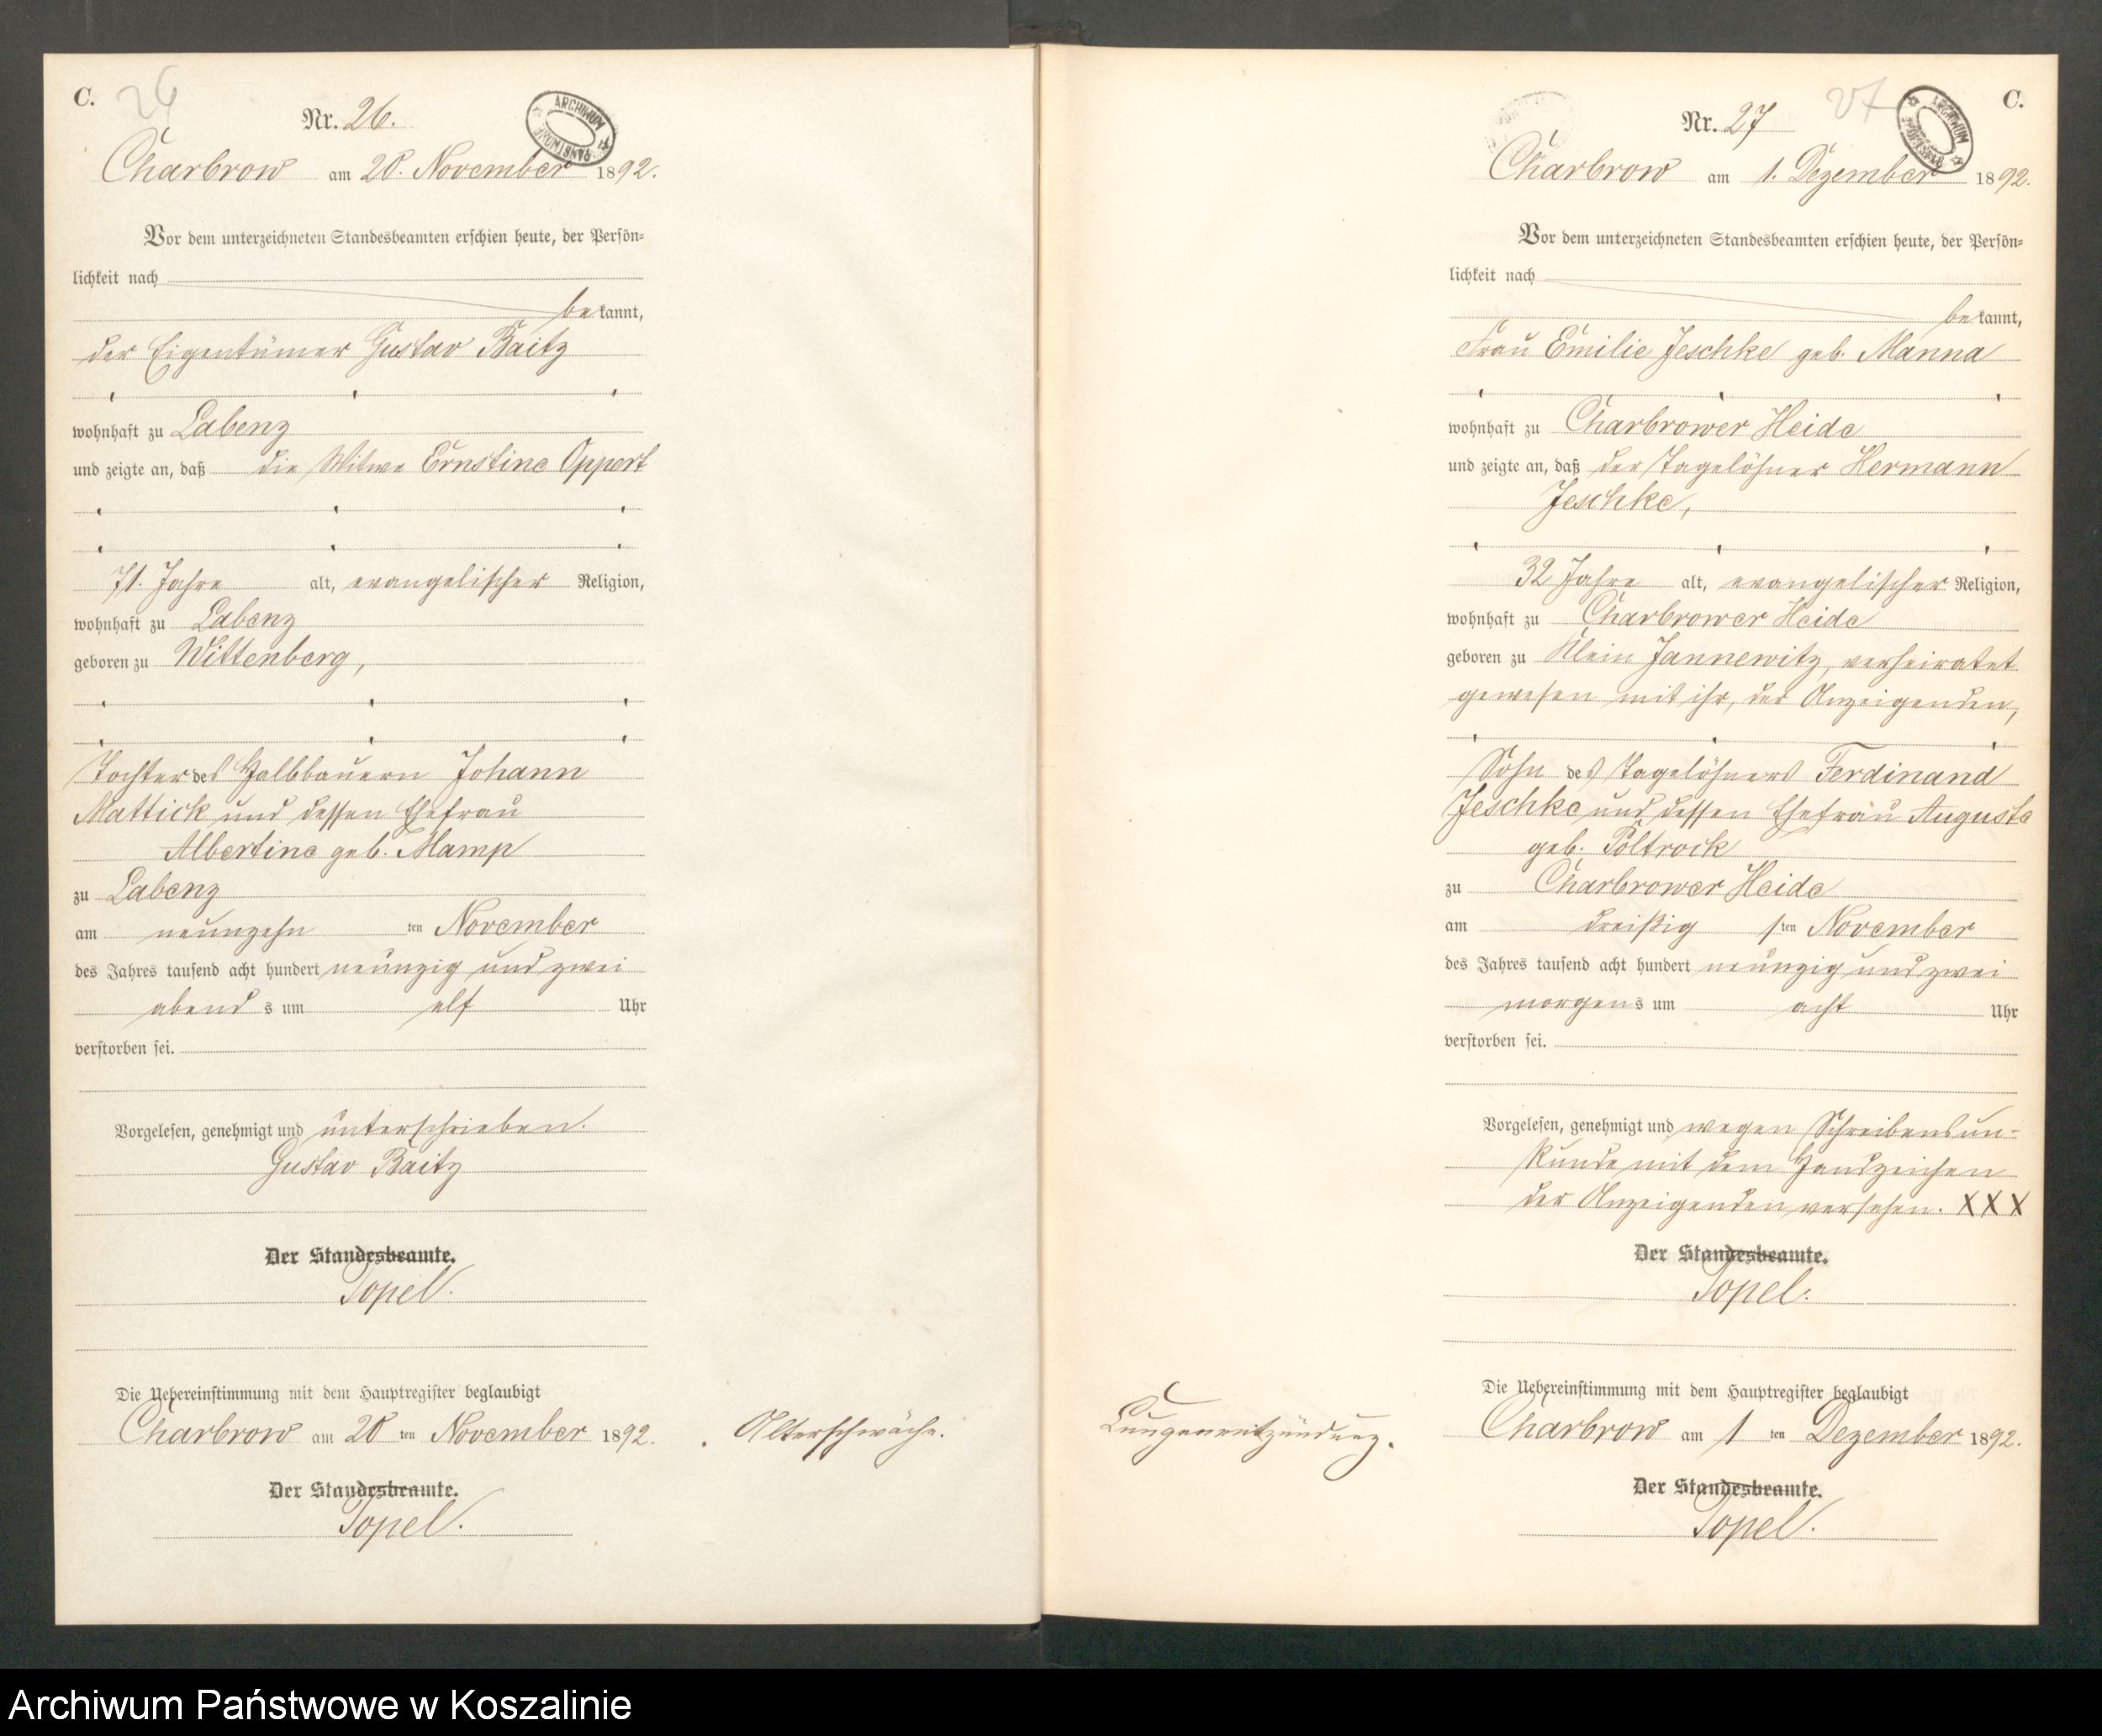 C.
26
Nr. 26.
ARCHIWUM
Charbrow am 20. November 1892.
Vor dem unterzeichneten Standesbeamten erschien heute, der Persön-
lichkeit nach
bekannt,
der Eigentümer Gustav Raitz
wohnhaft zu Labenz
und zeigte an, daß die Witwe Ernstine Oppert
71. Jahre alt, evangelischer Religion,
wohnhaft zu Labenz
geboren zu Wittenberg,
Tochter des Halbbauern Johann
Mattick und dessen Ehefrau
Albertine geb. Mamp
zu Labenz
am neunzehn ten November
des Jahres tausend acht hundert neunzig und zwei
abends um elf Uhr
verstorben sei.
Vorgelesen, genehmigt und unterschrieben.
Gustav Raitz
Der Standesbeamte.
Topel.
Die Uebereinstimmung mit dem Hauptregister beglaubigt
Charbrow am 20 ten November 1892.
Altersschwäche.
Der Standesbeamte.
Topel.
27
C.
Nr. 27
ARCHIWUM
Charbrow am 1. Dezember 1892.
Vor dem unterzeichneten Standesbeamten erschien heute, der Persön-
lichkeit nach
bekannt,
Frau Emilie Jeschke geb. Manna
wohnhaft zu Charbrower Heide
und zeigte an, daß der Tagelöhner Hermann
Jeschke,
32 Jahre alt, evangelischer Religion,
wohnhaft zu Charbrower Heide
geboren zu Klein Jannewitz, verheiratet
gewesen mit ihr, der Anzeigenden,
Sohn des Tagelöhners Ferdinand
Jeschke und dessen Ehefrau Auguste
geb. Poltrock
zu Charbrower Heide
am dreißigsten November
des Jahres tausend acht hundert neunzig und zwei
morgens um acht Uhr
verstorben sei.
Vorgelesen, genehmigt und wegen Schreibensun-
kunde mit dem Handzeichen
der Anzeigenden versehen. XXX
Der Standesbeamte.
Topel.
Die Uebereinstimmung mit dem Hauptregister beglaubigt
Lungenentzündung.
Charbrow am 1 ten Dezember 1892.
Der Standesbeamte.
Topel.
Archiwum Państwowe w Koszalinie